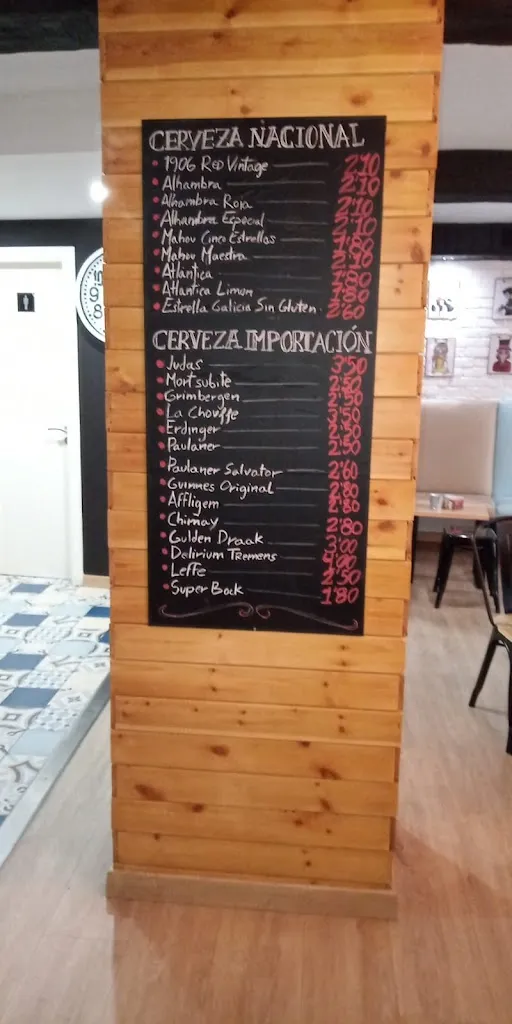 CERVEZA NACIONAL
1906 Red Vintage 2'40
Alhambra 2'10
Alhambra Roja 2'10
Alhambra Especial 2'10
Mahou Cinco Estrellas 1'80
Mahou Maestra
Atlántica 1'80
Atlantica Limon 1'80
Estrella Galicia Sin Gluten 2'60
CERVEZA IMPORTACIÓN
Judas 3'50
Mortsubite 2'50
Grimbergen 2'50
La Chouffe 3'50
Erdinger 2'50
Paulaner 2'50
Paulaner Salvator 2'60
Guinnes Original 2'80
Affligem 2'80
Chimay 2'80
Gulden Draak 3'00
Delirium Tremens 4'00
Leffe 2'50
Super Bock 1'80
10
9
8